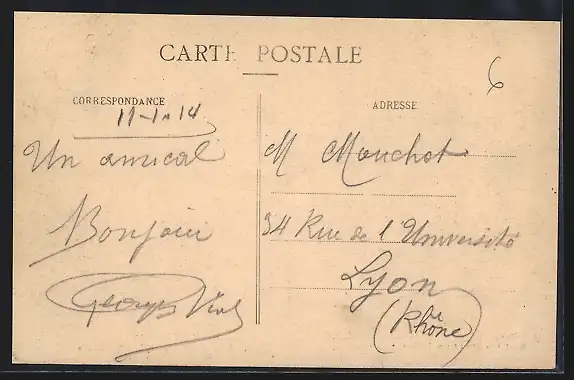 CARTE POSTALE
6
CORRESPONDANCE
11-1-14
Un amical
Bonjour
Georges Vial
ADRESSE
M Mouchot
34 Rue de l'Université
Lyon
(Rhône)